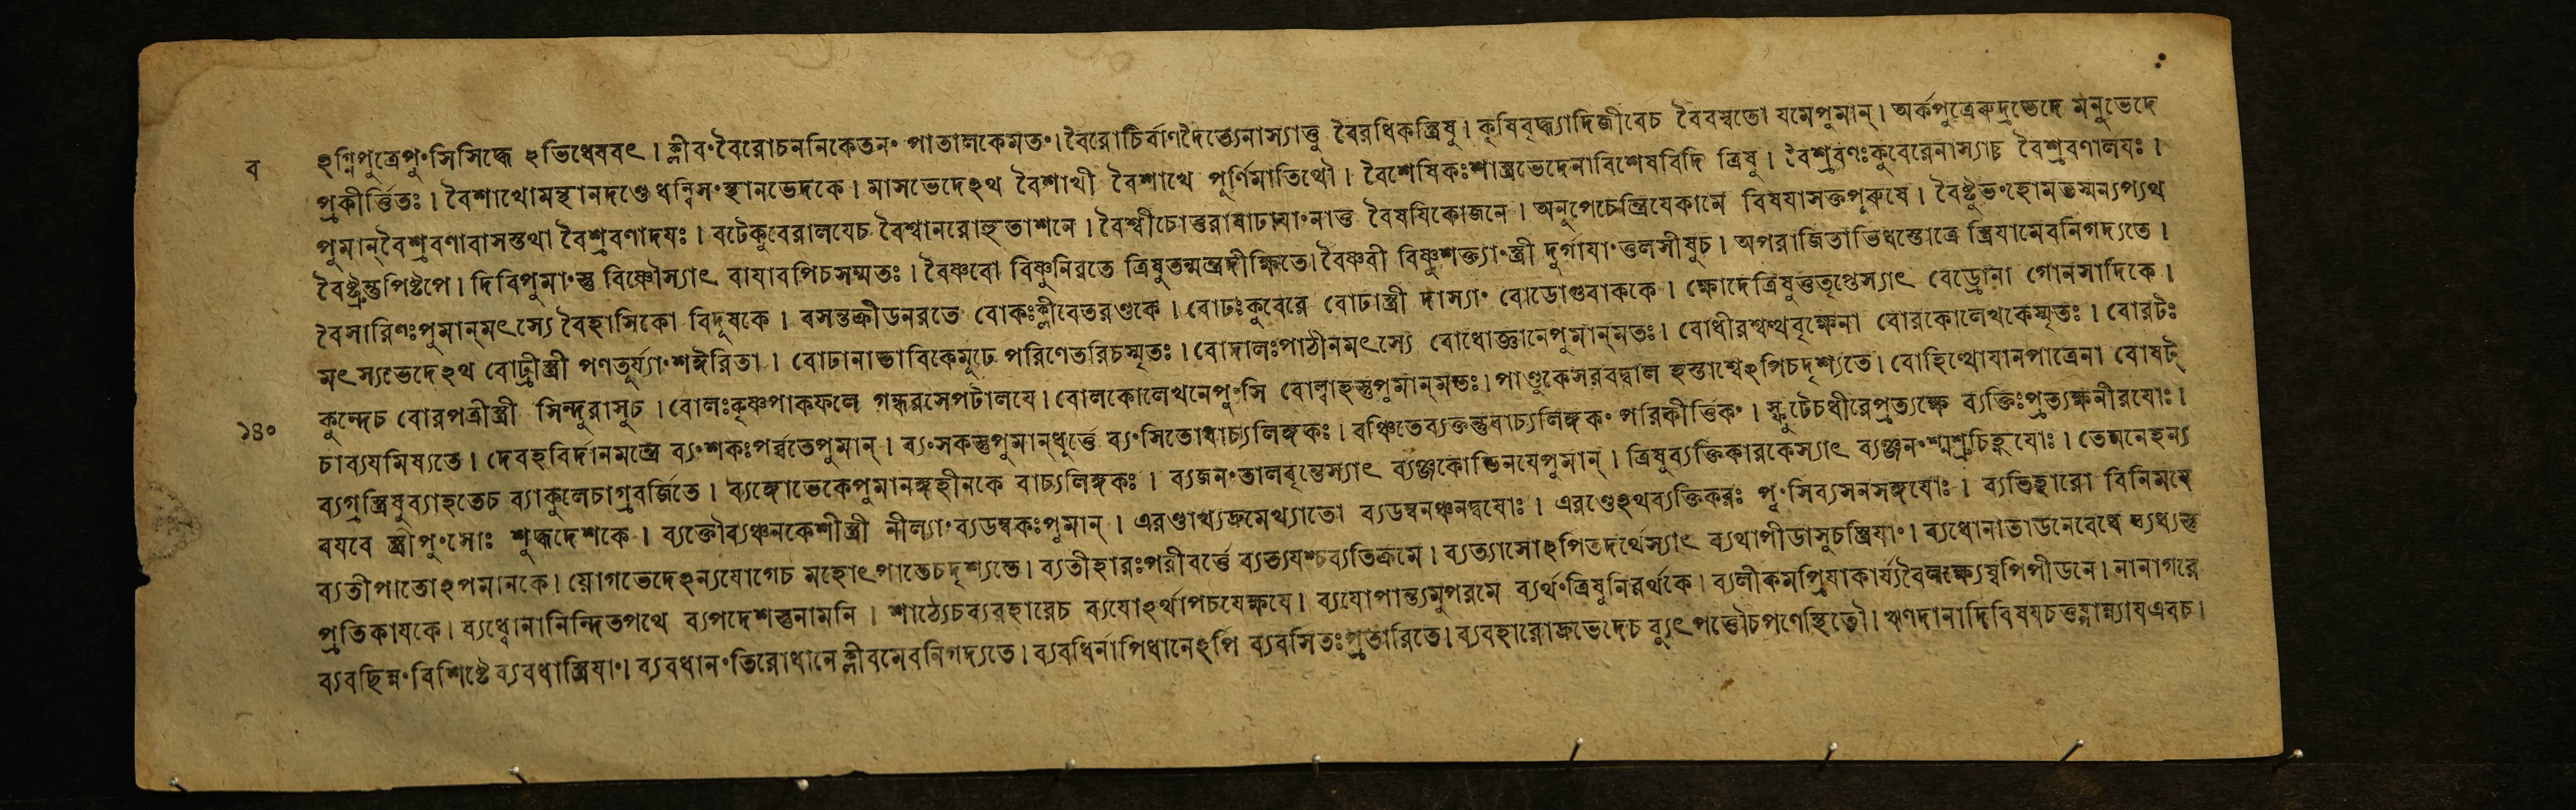 ব
ঽগ্নিপুত্রেপুংসিসিদ্ধে ঽভিধেববৎ। ক্লীবংবৈরোচননিকেতনং পাতালকেমতং। বৈরোচির্বাণদৈত্যেনাস্যাত্তু বৈরধিকস্ত্রিষু। কৃষিবৃদ্ধ্যাদিজীবেচ বৈবস্বতো যমেপুমান্। অর্কপুত্রেরুদ্রভেদে মনুভেদে
প্রকীর্ত্তিতঃ। বৈশাখোমন্থানদণ্ডেধন্বিসংস্থানভেদকে। মাসভেদেঽথ বৈশাখী বৈশাখে পূর্ণিমাতিথৌ। বৈশেষিকঃশাস্ত্রভেদেনাবিশেষবিদি ত্রিষু। বৈশ্রবণঃকুবেরেনাস্যাচ্চ বৈশ্রবণালযঃ।
পুমান্বৈশ্রবণাবাসস্তথা বৈশ্রবণাদযঃ। বটেকুবেরালযেচ বৈশ্বানরোহুতাশনে। বৈশ্বীচোত্তরাষাঢাযাংনাত্তু বৈষযিকোজনে। অনুপেচেন্দ্রিযেকামে বিষযাসক্তপুরুষে। বৈষ্টুভংহোমভস্মন্যপ্যথ
বৈষ্ট্রন্তুপিষ্টপে। দিবিপুমাংস্তু বিষ্ণৌস্যাৎ বাযাবপিচসম্মতঃ। বৈষ্ণবো বিষ্ণুনিরতে ত্রিষুতন্মন্ত্রদীক্ষিতে। বৈষ্ণবী বিষ্ণুশক্ত্যাংস্ত্রী দুর্গাযাংত্তলসীষুচ। অপরাজিতাভিধস্তোত্রে স্ত্রিযামেবনিগদ্যতে।
বৈসারিণঃপুমান্মৎস্যে বৈহাসিকো বিদূষকে। বসন্তক্রীডনরতে বোকঃক্লীবেতরণ্ডকে। বোঢঃকুবেরে বোঢাস্ত্রী দাস্যাং বোডোগুবাককে। ক্ষোদেত্রিষুত্ততৃপ্তেস্যাৎ বেড্রোনা গোনসাদিকে।
মৎস্যভেদেঽথ বোট্রীস্ত্রী পণতূর্য্যাংশঈরিতা। বোঢানাভাবিকেমূঢে পরিণেতরিচস্মৃতঃ। বোদালঃপাঠীনমৎস্যে বোধোজ্ঞানেপুমান্মতঃ। বোধীরশ্বত্থবৃক্ষেনা বোরকোলেখকেস্মৃতঃ। বোরটঃ
কুন্দেচ বোরপত্রীস্ত্রী সিন্দুরাসুচ। বোলঃকৃষ্ণপাকফলে গন্ধরসেপটালযে। বোলকোলেখনেপুংসি বোল্বাহস্তুপুমান্মতঃ। পাণ্ডুকেসরবদ্বাল হস্তাশ্বেঽপিচদৃশ্যতে। বোহিত্থোযানপাত্রেনা বোষট্
১৪০
চাব্যযমিষ্যতে। দেবহবির্দানমন্ত্রে ব্যংশকঃপর্ব্বতেপুমান্। ব্যংসকস্তুপুমান্ধূর্ত্তে ব্যংসিতোবাচ্যলিঙ্গকঃ। বঞ্চিতেব্যক্তন্তুবাচ্যলিঙ্গকং পরিকীর্ত্তিকং। স্ফুটেচধীরেপ্রত্যক্ষে ব্যক্তিঃপ্রত্যক্ষনীরযোঃ।
ব্যগ্রস্ত্রিষুব্যাহতেচ ব্যাকুলেচাগ্রবর্জিতে। ব্যঙ্গোভেকেপুমানঙ্গহীনকে বাচ্যলিঙ্গকঃ। ব্যজনংতালবৃন্তেস্যাৎ ব্যঞ্জকোভিনযেপুমান্। ত্রিষুব্যক্তিকারকেস্যাৎ ব্যঞ্জনংশ্মশ্রুচিহ্নযোঃ। তেমনেহন্য
বযবে স্ত্রীপুংসোঃ শুদ্ধদেশকে। ব্যক্তৌব্যঞ্চনকেশীস্ত্রী নীল্যাংব্যডম্বকঃপুমান্। এরণ্ডাখ্যদ্রুমেথ্যাতো ব্যডম্বনঞ্চনদ্বযোঃ। এরণ্ডেঽথব্যক্তিকরঃ পুংসিব্যসনসঙ্গযোঃ। ব্যতিহারো বিনিমযে
ব্যতীপাতোঽপমানকে। য়োগভেদেঽন্যযোগেচ মহোৎপাতেচদৃশ্যতে। ব্যতীহারঃপরীবর্ত্তে ব্যত্যযশ্চব্যতিক্রমে। ব্যত্যাসোঽপিতদর্থেস্যাৎ ব্যথাপীডাসুচস্ত্রিযাং। ব্যধোনাতাডনেবেধে ব্যধ্যস্তু
প্রতিকাযকে। ব্যধ্বোনানিন্দিতপথে ব্যপদেশস্তুনামনি। শাঠ্যেচব্যবহারেচ ব্যযোঽর্থাপচযেক্ষযে। ব্যযোপান্ত্যমুপরমে ব্যর্থংত্রিষুনিরর্থকে। ব্যলীকমপ্রিযাকার্য্যবৈলক্ষ্যেষ্বপিপীডনে। নানাগরে
ব্যবছিন্নংবিশিষ্টে ব্যবধাস্ত্রিযাং। ব্যবধানংতিরোধানে ক্লীবমেবনিগদ্যতে। ব্যবধির্নাপিধানেঽপি ব্যবসিতঃপ্রতারিতে। ব্যবহারোদ্রুভেদেচ ব্যুৎপত্তৌচপণেস্থিতৌ। ঋণদানাদিবিষযচত্তন্নাম্ন্যাযএবচ।